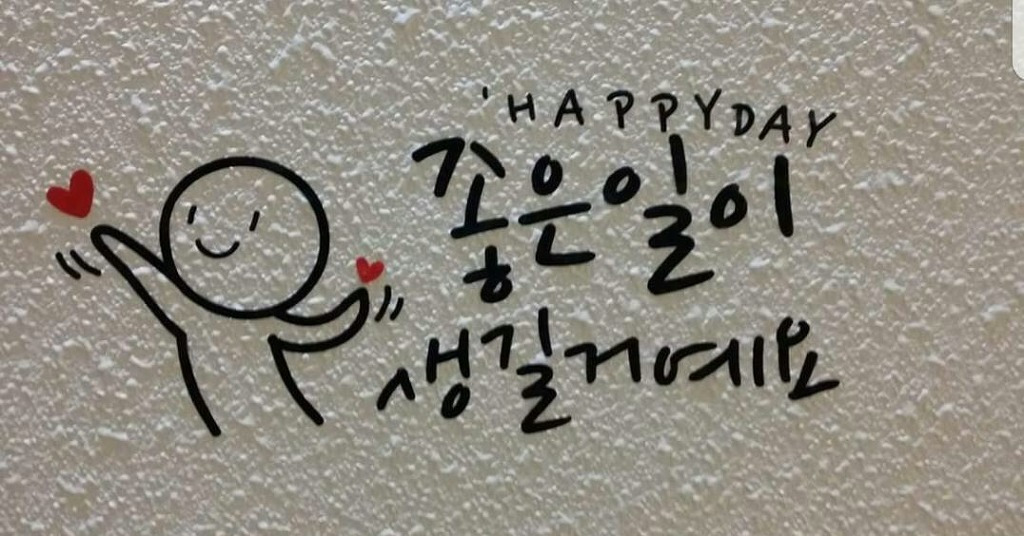 'HAPPYDAY
좋은일이
생길거예요